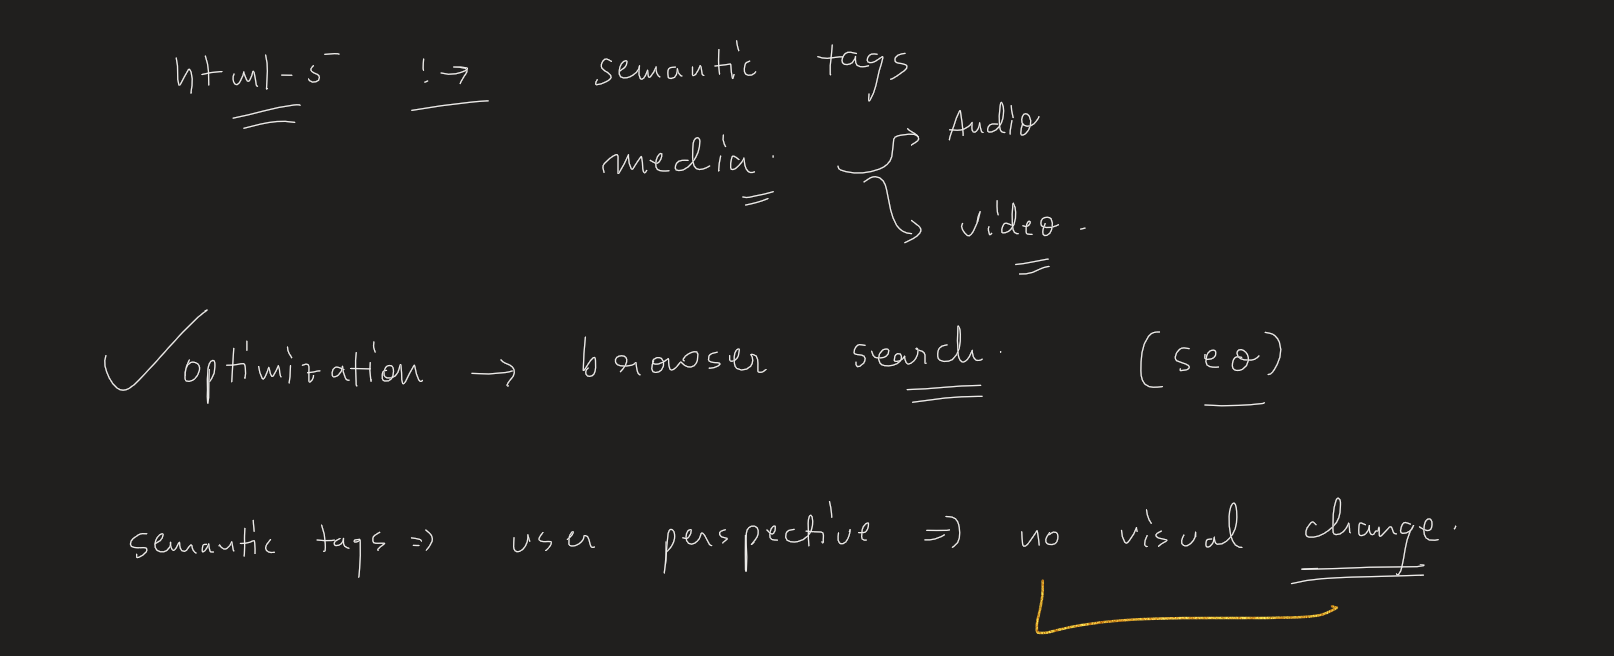 html-5 !→ semantic tags
media. Audio
video.
optimization → browser search. (seo)
semantic tags => user perspective => no visual change.